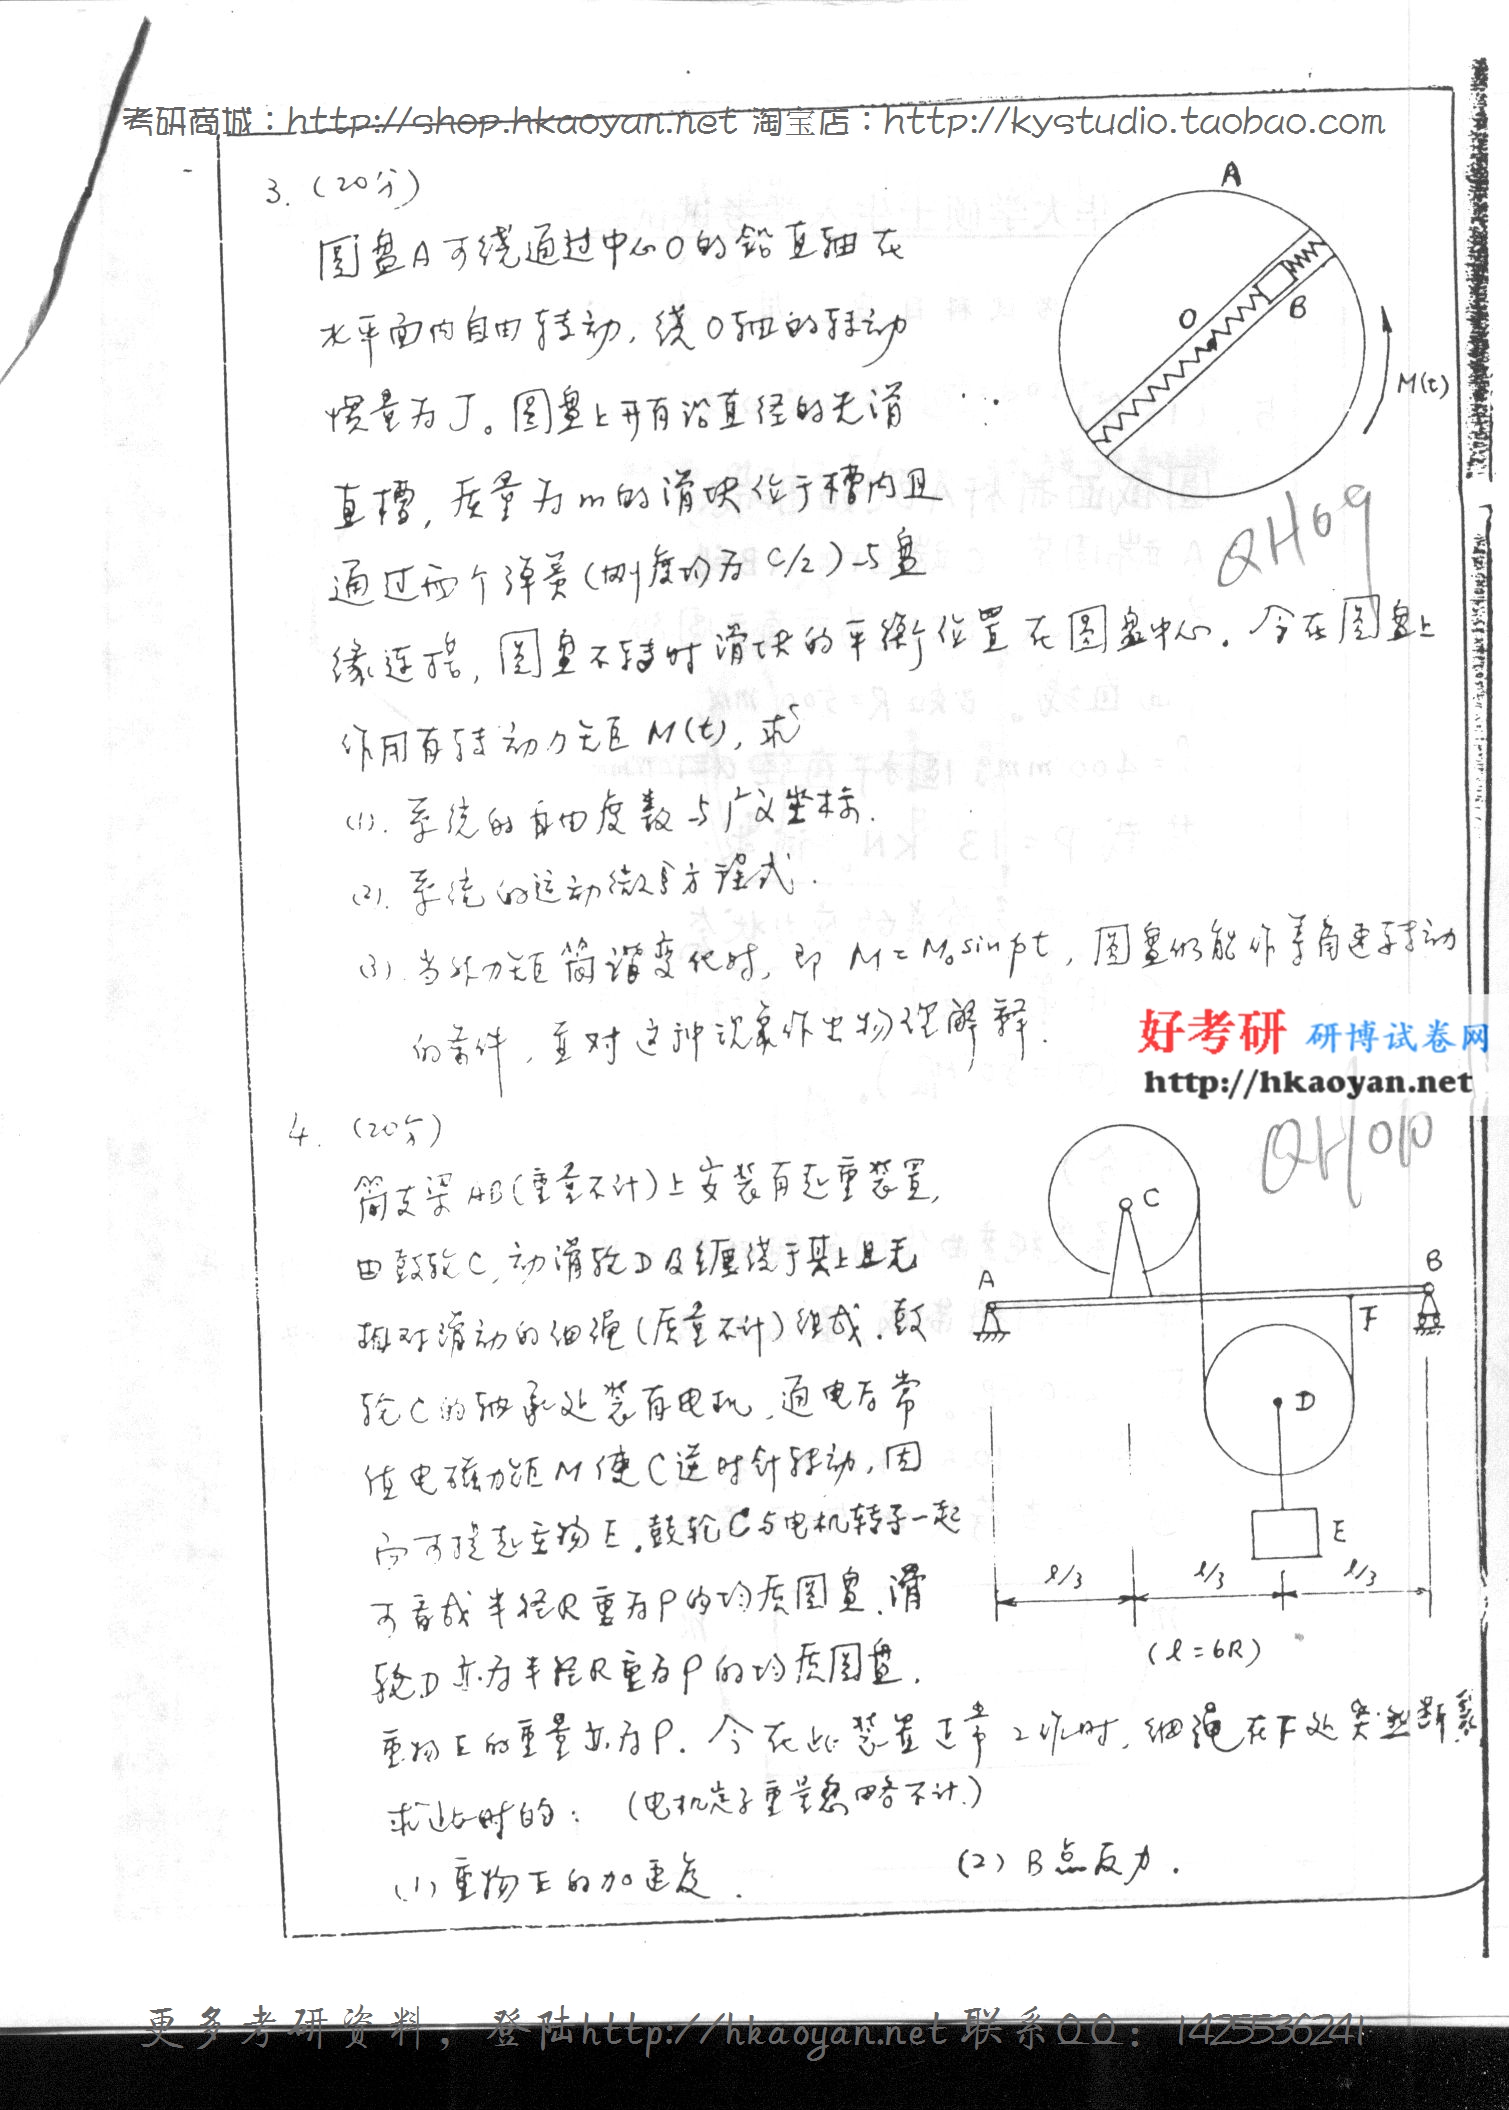 考研商城：http://shop.hkaoyan.net 淘宝店：http://kystudio.taobao.com
3. (20分)
圆盘A可绕通过中心O的铅直轴在
水平面内自由转动，绕O轴的转动
惯量为J。圆盘上开有沿直径的光滑
直槽，质量为m的滑块位于槽内且
通过两个弹簧(刚度均为C/2)与盘
缘连接，圆盘不转时滑块的平衡位置在圆盘中心．今在圆盘上
作用有转动力矩M(t)，求
(1). 系统的自由度数与广义坐标．
(2). 系统的运动微分方程式．
(3). 当外力矩简谐变化时，即 M=M₀sinpt，圆盘仍能作等角速转动
的条件，并对这种现象作出物理解释．
A
O
B
M(t)
QH09
好考研 研博试卷网
http://hkaoyan.net
4. (20分)
简支梁AB(重量不计)上安装有起重装置，
由鼓轮C，动滑轮D及缠绕于其上且无
相对滑动的细绳(质量不计)组成．鼓
轮C的轴承处装有电机，通电后常
值电磁力矩M使C逆时针转动，因
而可提起重物E．鼓轮C与电机转子一起
可看成半径R重为P的均质圆盘，滑
轮D亦为半径R重为P的均质圆盘．
重物E的重量亦为P．今在此装置正常工作时，细绳在F处突然断裂
求此时的：(电机定子重量忽略不计．)
(1) 重物E的加速度．
(2) B点反力．
C
A
B
F
D
E
l/3
l/3
l/3
(l=6R)
更多考研资料，登陆http://hkaoyan.net 联系QQ：1425536241